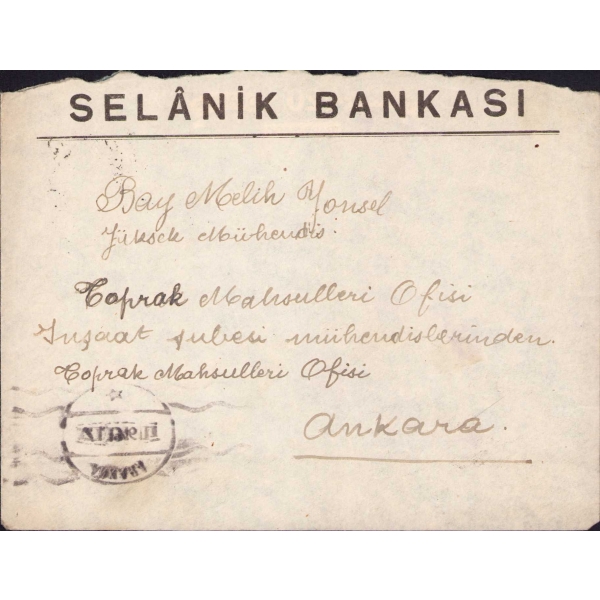 SELÂNİK BANKASI
Bay Melih Yönsel
Yüksek Mühendis
Toprak Mahsulleri Ofisi
İnşaat şubesi mühendislerinden.
Toprak Mahsulleri Ofisi
Ankara.